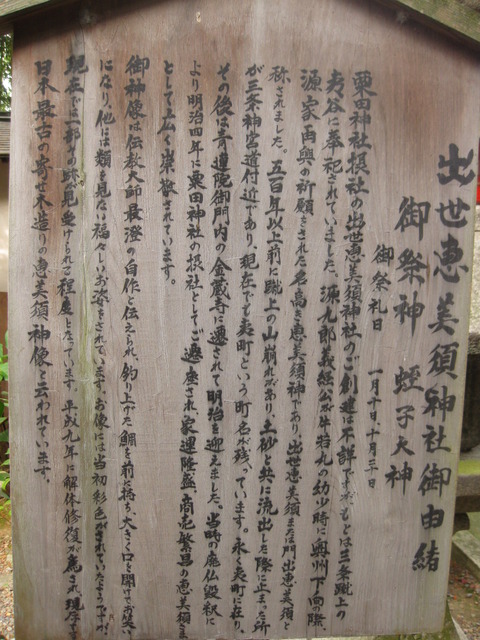 出世恵美須神社御由緒
御祭神 蛭子大神
御祭礼日 一月十日、十月二十日
粟田神社摂社の出世恵美須神社のご創建は不詳ですがもとは三条蹴上の
夷谷に奉祀されていました。源九郎義経公が牛若丸の幼少時に奥州下向の際、
源家再興の祈願をされた名高き恵美須神であり、出世恵美須または門出恵美須と
称されました。五百年以上前に蹴上の山崩れがあり、土砂と共に流出した際に止まった所
が三条神宮道付近であり、現在でも夷町という町名が残っています。永く夷町に在り、
その後は青蓮院御門内の金蔵寺に遷されて明治を迎えました。当時の廃仏毀釈に
より明治四年に粟田神社の摂社としてご遷座され家運隆盛、商売繁昌の恵美須さま
として広く崇敬されています。
御神像は伝教大師最澄の自作と伝えられ、釣り上げた鯛を前に持ち、大きく口を開けてお笑い
になり、他には類を見ない福々しいお姿をされています。お像には当初彩色がされていたようですが
現在では一部その跡が見受けられる程度となっています。平成九年に解体修復が為され、現存する
日本最古の寄せ木造りの恵美須神像と云われています。